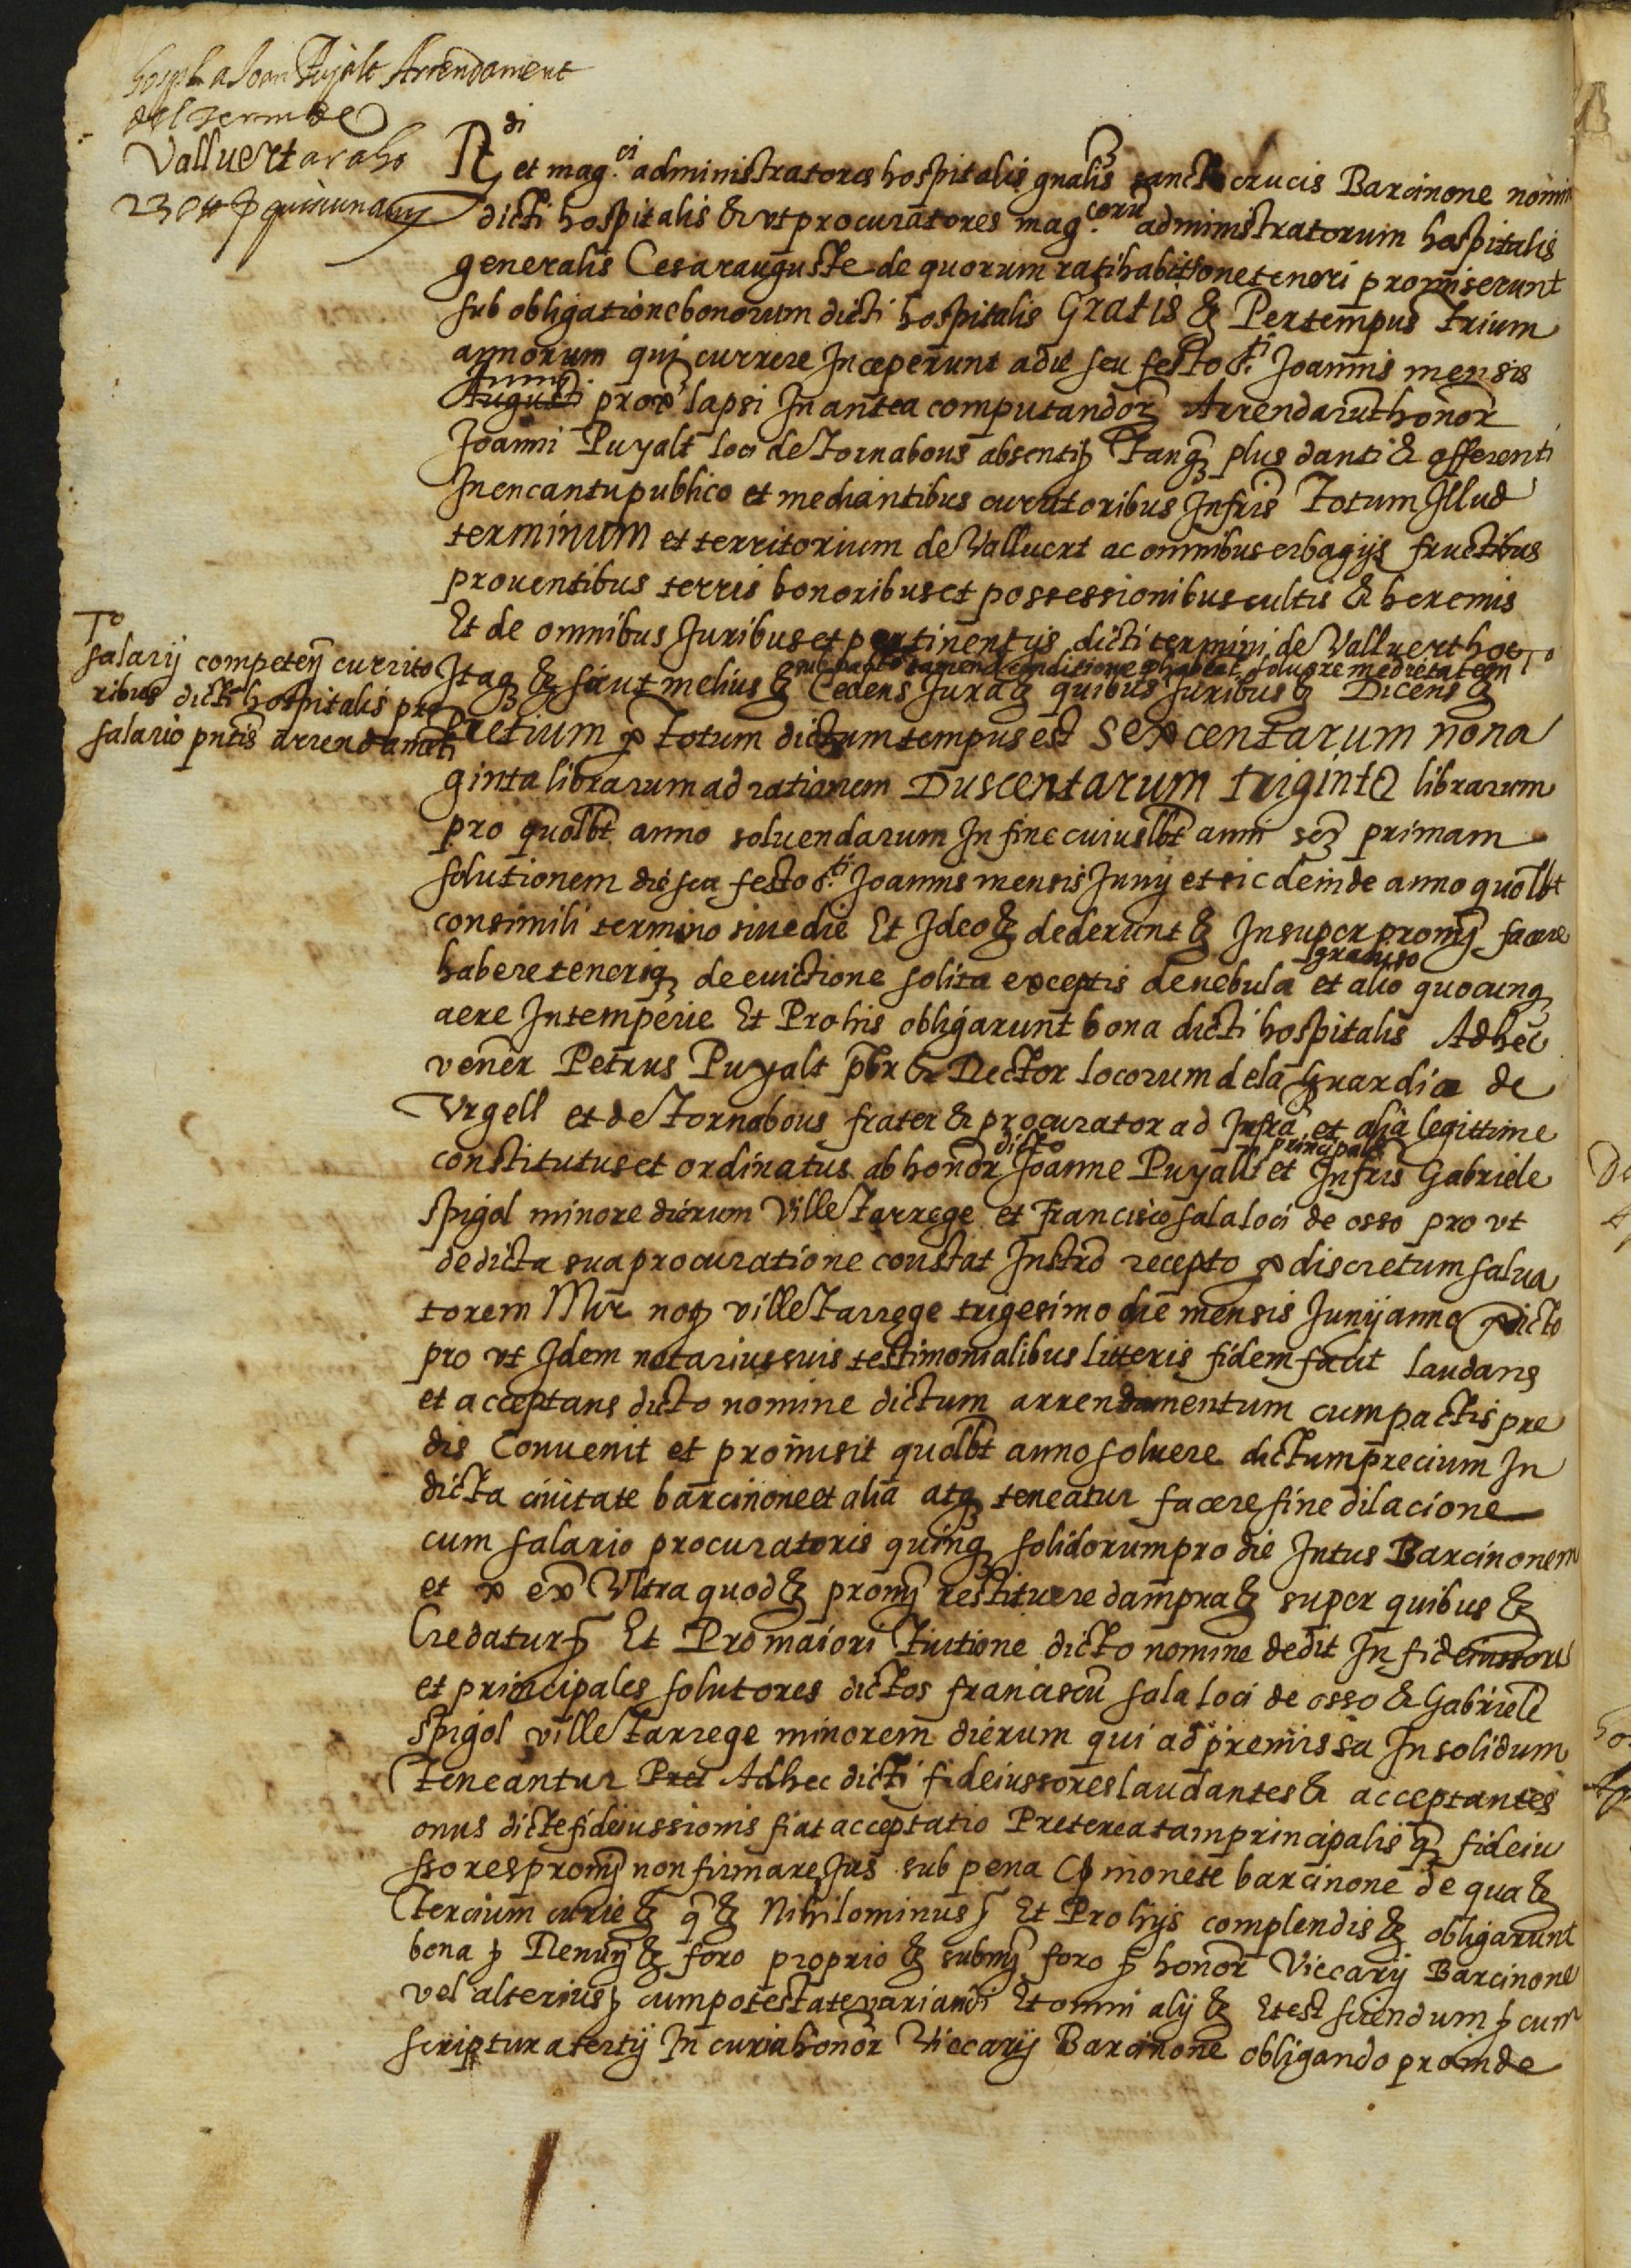 hospl a Joan Pujalt Arrendament
del terme de
Valluert a raho
230 ll p quiscun any
Rdi et mag.ci administratores hospitalis gnalis sancte crucis Barcinone nomine
dicti hospitalis & vt procuratores mag.coru administratorum hospitalis
generalis Cesarauguste de quorum ratihabitione teneri promiserunt
sub obligatione bonorum dicti hospitalis Gratis & Per tempus trium
annorum qui currere Inceperunt a die seu festo s.ti Joannis mensis
Junij
Augusti prox lapsi In antea computandor Arrendarunt honor
Joanni Puyalt loci de Tornabous absenti Tanq plus danti & offerenti
In encantu publico et mediantibus curritoribus Infris Totum Illud
terminum et territorium de Valluert ac omnibus erbagijs fructibus
prouentibus terris honoribus et possessionibus cultis & heremis
Et de omnibus Juribus et pertinentijs dicti termini de Valluert hoc
To
salarij competen currito
ribus dicti hospitalis pro
salario pntis arrendamti
sub pacto tamen & conditione q habeat soluere medietatem To
Itaq & sicut melius & Cedens Jura & quibus Juribus & Dicens &
Pretium p Totum dictum tempus est sexcentarum nona
ginta librarum ad rationem Duscentarum triginta librarum
pro quolbt anno soluendarum In fine cuiuslbt anni sez primam
solutionem die seu festo s.ti Joannis mensis Junij et sic deinde anno quolbt
consimili termino siue die Et Ideo & dederunt & Insuper promj facere
granizo
habere teneriq de euictione solita exceptis de nebula et alio quocunq
aere Intemperie Et Pro his obligarunt bona dicti hospitalis Ad hec
vener Petrus Puyalt pbr & Rector locorum de la Guardia de
Vrgell et de Tornabous frater & procurator ad Infra et alia legittime
dicto principali
constitutus et ordinatus ab honor Joanne Puyalt et Infris Gabriele
Spigol minore dierum Ville Tarrege et Francisco sala loci de osso pro vt
de dicta sua procuratione constat Instro recepto p discretum salua
torem Mir not ville Tarrege trigesimo die mensis Junij anno pdicto
pro vt Idem notarius suis testimonialibus litteris fidem facit laudans
et acceptans dicto nomine dictum arrendamentum cum pactis pre
dis Conuenit et promisit quolbt anno soluere dictum precium In
dicta ciuitate barcinone et alia atq teneatur facere sine dilacione
cum salario procuratoris quinq solidorum pro die Intus Barcinonem
et x ex Vltra quod & promj restituere dampna & super quibus &
Credatur Et Pro maiori Tuitione dicto nomine dedit In fideiussores
et principales solutores dictos franciscu sala loci de osso & Gabriele
Spigol ville Tarrege minorem dierum qui ad premissa In solidum
Teneantur Pret Ad hec dicti fideiussores laudantes & acceptantes
onus dicte fideiussionis fiat acceptatio Preterea tam principalis q fideiu
ssores promj non firmare Jus sub pena monete barcinone de qua &
Tercium curie & q & Nihilominus Et Pro hijs complendis & obligarunt
bona Renunj & foro proprio & submj foro honor Viccarij Barcinone
vel alterius cum potestate variandi Et omni alij & Et est sciendum cum
scriptura tertij In curia honor Viccarij Barcinone obligando proinde